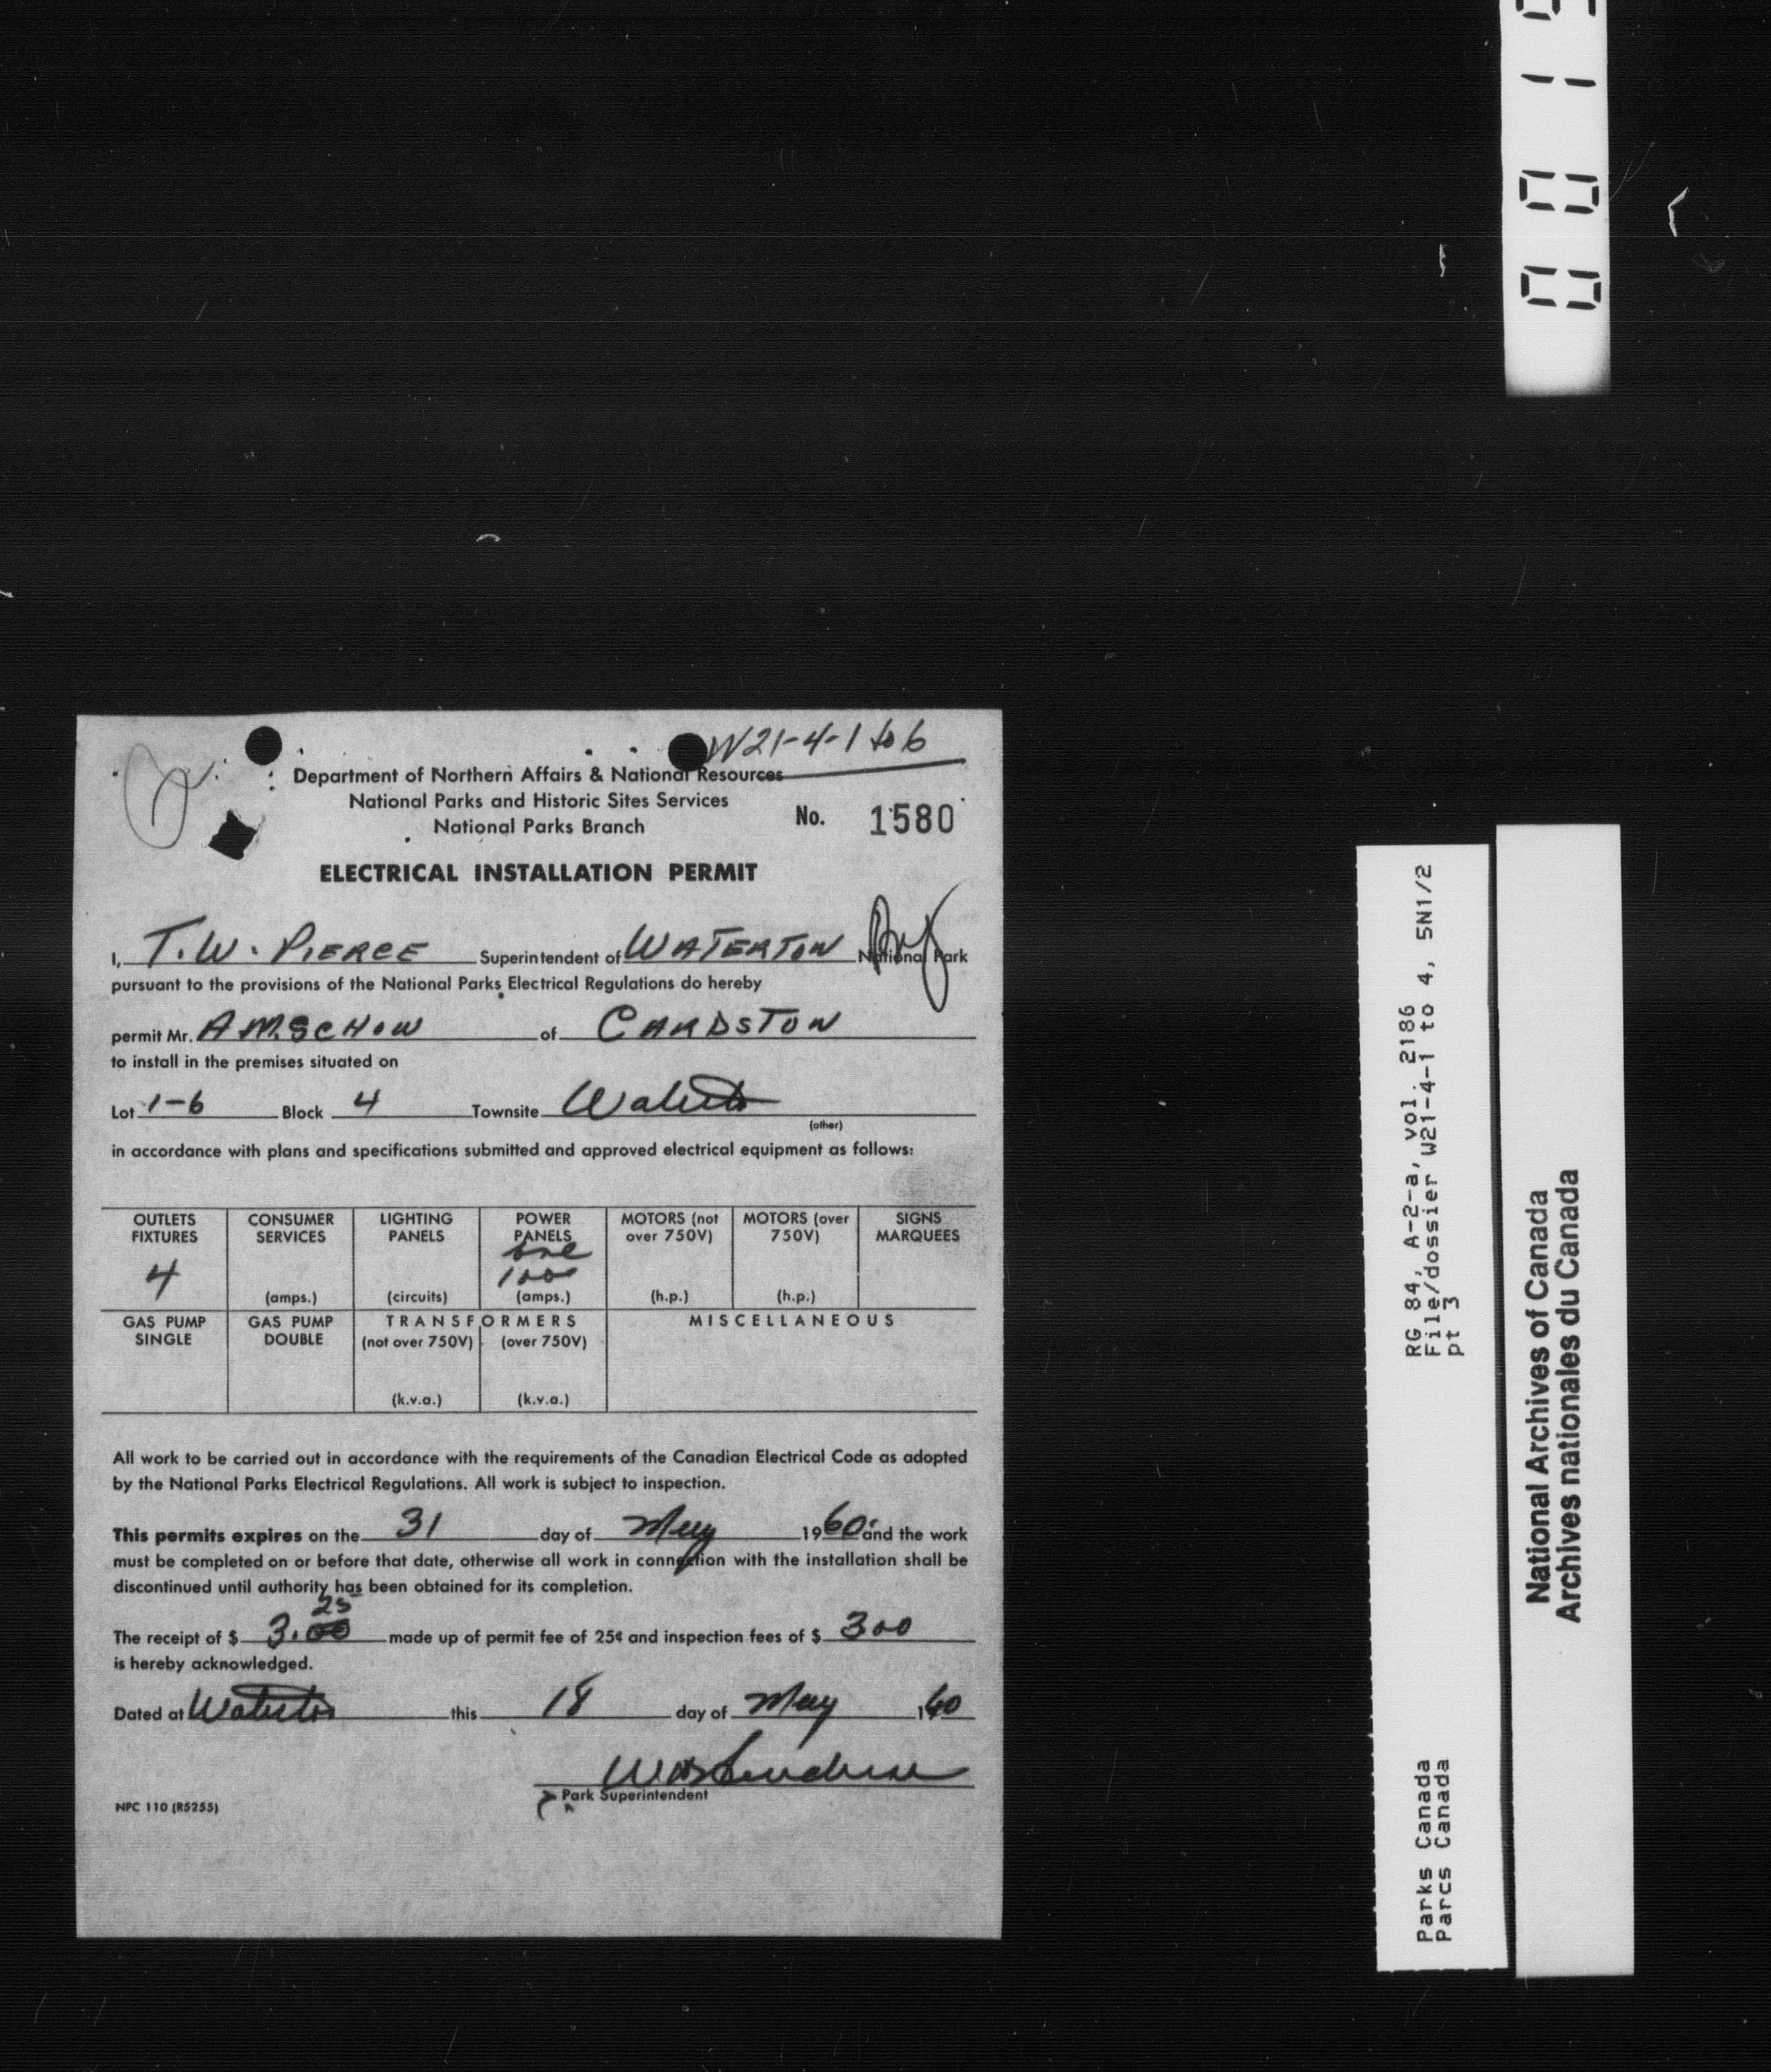 W21-4-1 to 6
Department of Northern Affairs & National Resources
National Parks and Historic Sites Services
National Parks Branch
No. 1580
ELECTRICAL INSTALLATION PERMIT
I, T.W. PIERCE Superintendent of WATERTON National Park
pursuant to the provisions of the National Parks Electrical Regulations do hereby
permit Mr. A M. SCHOW of CARDSTON
to install in the premises situated on
Lot 1-6 Block 4 Townsite Waterton
(other)
in accordance with plans and specifications submitted and approved electrical equipment as follows:
OUTLETS FIXTURES CONSUMER SERVICES LIGHTING PANELS POWER PANELS MOTORS (not over 750V) MOTORS (over 750V) SIGNS MARQUEES
4 one
(amps.) (circuits) (amps.) (h.p.) (h.p.)
GAS PUMP SINGLE GAS PUMP DOUBLE TRANSFORMERS MISCELLANEOUS
(not over 750V) (over 750V)
(k.v.a.) (k.v.a.)
All work to be carried out in accordance with the requirements of the Canadian Electrical Code as adopted
by the National Parks Electrical Regulations. All work is subject to inspection.
This permits expires on the 31 day of May 1960 and the work
must be completed on or before that date, otherwise all work in connection with the installation shall be
discontinued until authority has been obtained for its completion.
25
The receipt of $ 3.00 made up of permit fee of 25¢ and inspection fees of $ 300
is hereby acknowledged.
Dated at Waterton this 18 day of May 1960
Park Superintendent
NPC 110 (R5255)
RG 84, A-2-a, vol. 2186
File/dossier W21-4-1 to 4, 5N1/2
pt 3
Parks Canada
Parcs Canada
National Archives of Canada
Archives nationales du Canada